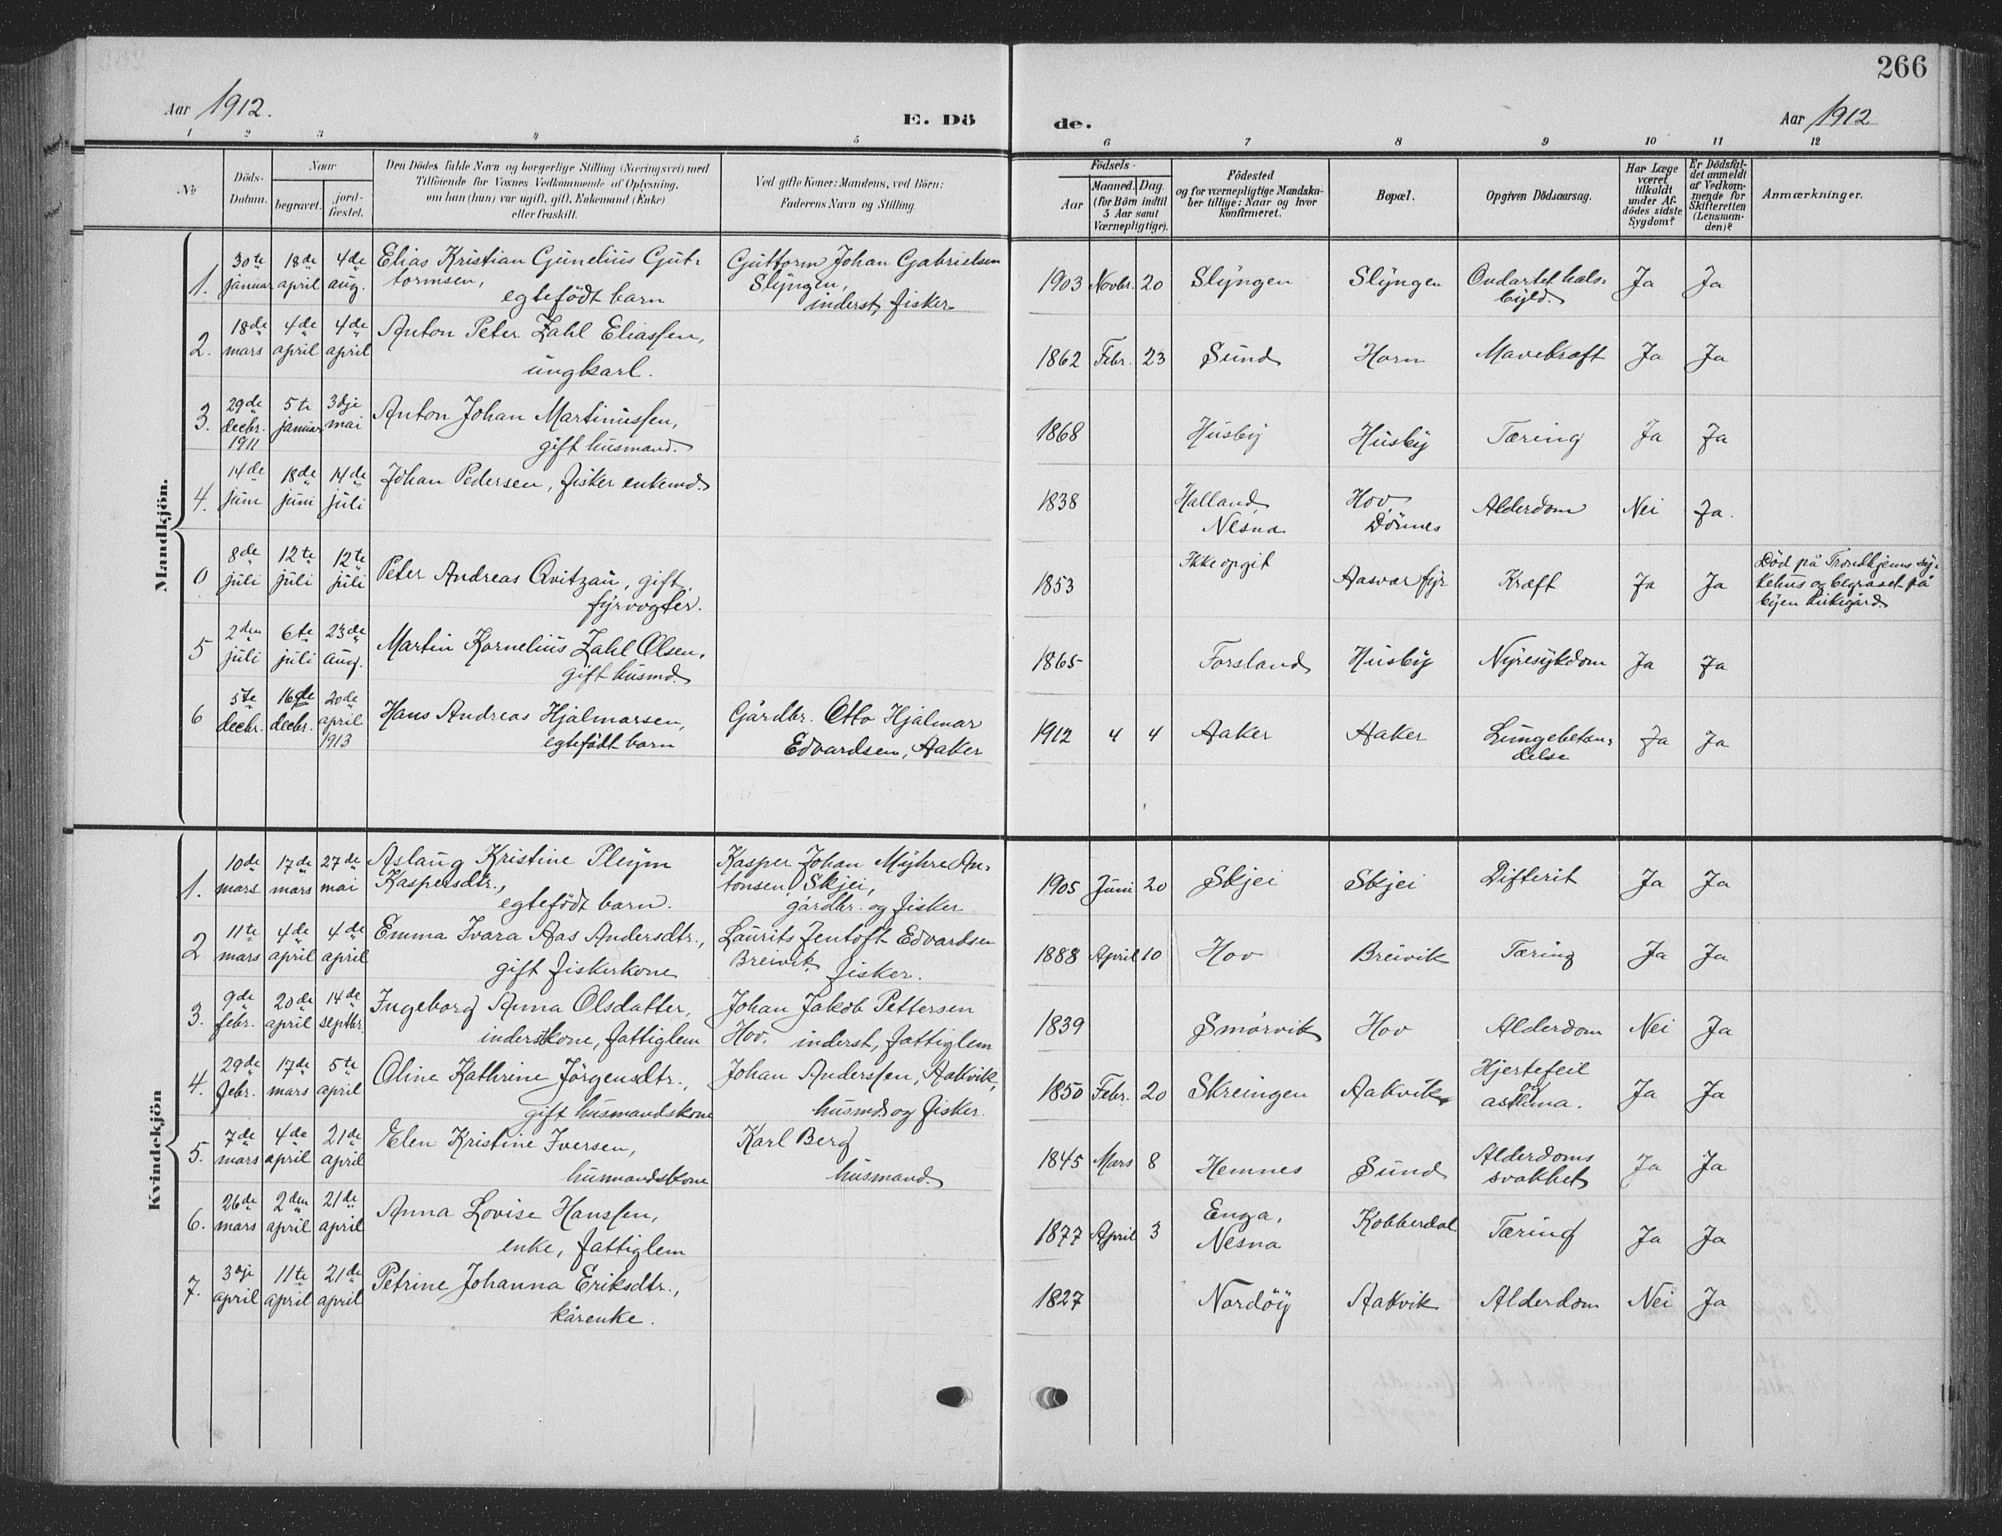 266
Aar 1912.
E. Dö
de.
Aar 1912
1 2 3 4 5 6 7 8 9 10 11 12
No
Döds-
Datum.
Naar
begravet.
jord-
fæstet.
Den Dödes fulde Navn og borgerlige Stilling (Næringsvei) med
Tilföiende for Voxnes Vedkommende af Oplysning,
om han (hun) var ugift, gift, Enkemand (Enke)
eller fraskilt.
Ved gifte Koner: Mandens, ved Börn:
Faderens Navn og Stilling.
Födsels-
Aar
Maaned. Dag.
(for Börn indtil
5 Aar samt
Værnepligtige).
Födested
og for værnepligtige Mandska-
ber tillige: Naar og hvor
konfirmeret.
Bopæl.
Opgiven Dödsaarsag.
Har Læge
været
tilkaldt
under Af-
dödes sidste
Sygdom?
Er Dödsfal-
det anmeldt
af Vedkom-
mende for
Skifteretten
(Lensman-
den)?
Anmærkninger.
Mandkjön.
1. 30te januar 18de april 4de aug. Elias Kristian Gunelius Gut-
tormsen,
egtefödt barn
Guttorm Johan Gabrielsen
Slyngen,
inderst, fisker
1903 Novbr. 20 Slyngen Slyngen Ondartet hals-
byld. Ja Ja
2. 18de mars 4de april 4de april Anton Peter Zahl Eliassen,
ungkarl.
1862 Febr. 23 Sund Horn Mavekræft Ja Ja
3. 29de decbr. 1911 5te januar 3dje mai Anton Johan Martinussen,
gift husmand.
1868 Husby Husby Tæring Ja Ja
4. 14de juni 18de juni 14de juli Johan Pedersen, fisker enkemd.
1838 Halland,
Nesna Hov,
Dönnes Alderdom Nei Ja.
0 8de juli 12te juli 12te juli Peter Andreas Qvitzau, gift,
fyrvogter.
1853 Ikke opgit Aasvær fyr Kræft Ja Ja
Död på Trondhjems sy-
kehus og begravet på
byen kirkegård.
5 2den juli 6te juli 23de aug. Martin Kornelius Zahl Olsen,
gift husmd.
1865 Forsland Husby Nyresykdom Ja Ja
6 5te decbr. 16de decbr. 20de april 1913 Hans Andreas Hjalmarsen,
egtefödt barn
Gårdbr. Otto Hjalmar
Edvardsen, Aaker
1912 4 4 Aaker Aaker Lungebetæn-
delse Ja Ja
Kvindekjön
1. 10de mars 17de mars 27de mai Aslaug Kristine Pleym
Kaspersdtr.,
egtefödt barn.
Kasper Johan Myhre An-
tonsen, Skjei,
gårdbr. og fisker
1905 Juni 20 Skjei Skjei Difterit Ja Ja
2 11te mars 4de april 4de april Emma Ivara Aas Andersdtr.,
gift fiskerkone
Laurits Jentoft Edvardsen
Breivik, fisker.
1888 April 10 Hov Breivik Tæring Ja Ja
3. 9de febr. 20de april 14de septbr. Ingeborg Anna Olsdatter,
inderstkone, fattiglem
Johan Jakob Pettersen
Hov. inderst, fattiglem
1839 Smörvik Hov Alderdom Nei Ja
4. 29de febr. 17de mars 5te april Oline Kathrine Jörgensdtr.,
gift husmandskone
Johan Anderssen, Aakvik,
husmd og fisker.
1850 Febr. 20 Skreingen Aakvik Hjertefeil
og
asthma. Ja Ja
5. 7de mars 4de april 21de april Elen Kristine Iversen,
husmandskone
Karl Berg
husmand
1845 Mars 8 Hemnes Sund Alderdoms
svakhet Ja Ja
6. 26de mars 2den april 21de april Anna Lovise Hanssen,
enke, fattiglem
1877 April 3 Enga,
Nesna Kobberdal Tæring Ja Ja
7. 3dje april 11te april 21de april Petrine Johanna Eriksdtr.,
kårenke.
1827 Nordöy Aakvik Alderdom Nei Ja